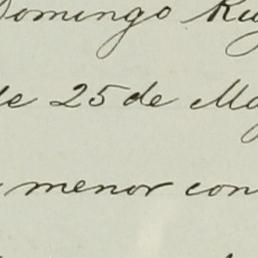 Domingo
de 25 de
menor con